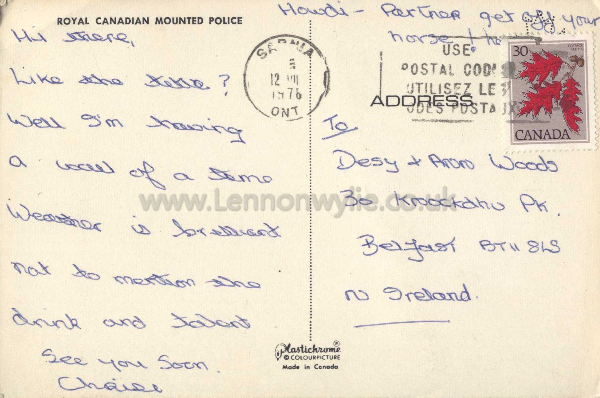 ROYAL CANADIAN MOUNTED POLICE
Howdi - Partner get off your
horse /
Hi there,
Like the title?
Well I'm having
a wail of a time
Weather is brilliant
not to mention the
drink and talent
See you soon.
SARNIA
12 VII
1978
ONT
USE
POSTAL CODE
UTILISEZ LE
CODES POSTAUX
30
CANADA
ADDRESS
To
Desy + Ann Woods
30 Knockdhu Pk.
Belfast BT11 8LS
N Ireland.
www.Lennonwylie.co.uk
Plastichrome ®
© COLOURPICTURE
Made in Canada